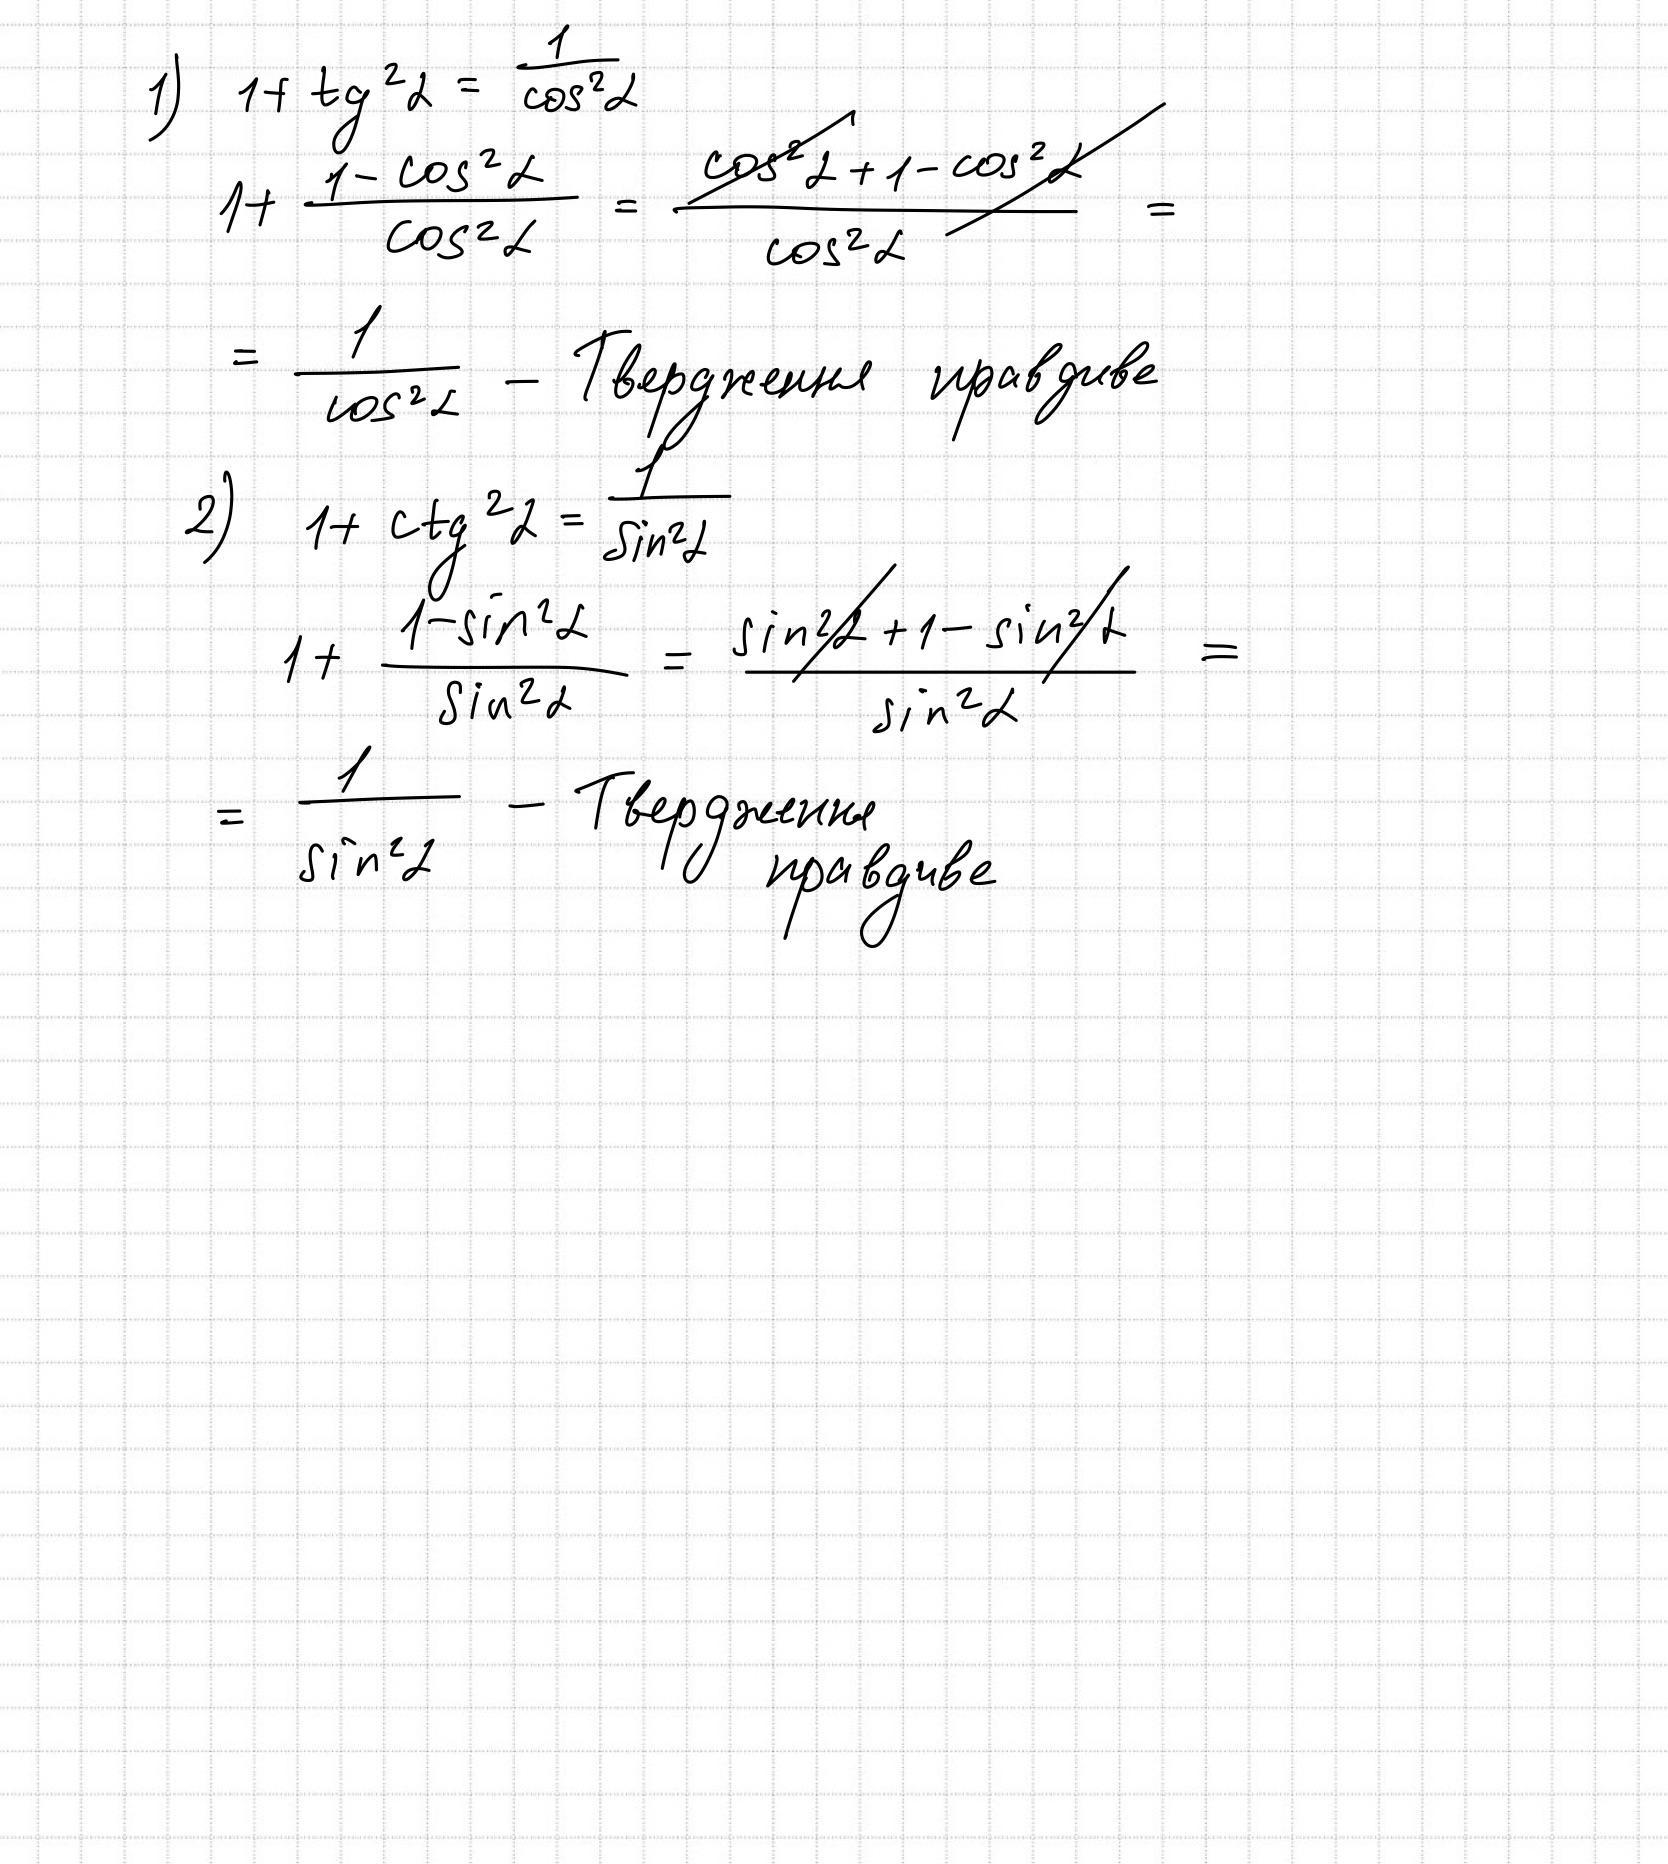 1) 1 + tg²α = 1/cos²α
1 + (1 - cos²α)/cos²α = (cos²α + 1 - cos²α)/cos²α =
= 1/cos²α - Твердження правдиве
2) 1 + ctg²α = 1/sin²α
1 + (1 - sin²α)/sin²α = (sin²α + 1 - sin²α)/sin²α =
= 1/sin²α - Твердження
правдиве